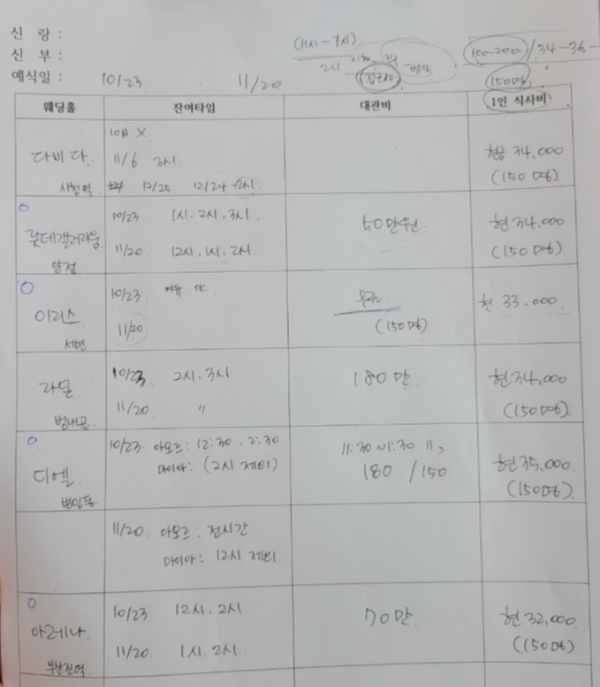 신 랑 :
신 부 :
예식일 : 10/23 11/20
(11시~7시)
2시
100-200 / 34-36-
150명
웨딩홀 잔여타임 대관비 1인 식사비
다비다
10月 X
11/6 3시
12/25 12/24
현금 34,000
(150명)
롯데갤러리움
양정
10/23 1시. 2시. 3시.
11/20 12시. 1시. 2시
50만원
현 34,000
(150명)
이리스
서면
10/23
11/20
무료
(150명)
현 33.000
라온
범내골
10/23 2시. 3시
11/20 "
180만
현34,000
(150명)
디엘
범일동
10/23. 아모르 : 12:30. 2:30
마이아: (2시 제티)
11:30 ~1:30
180 /150
현35,000.
(150명)
11/20. 아모르. 전시간
마이아: 12시 제티.
아레나.
부산진역
10/23 12시. 2시.
11/20. 1시. 2시
70만.
현32,000
(150명)